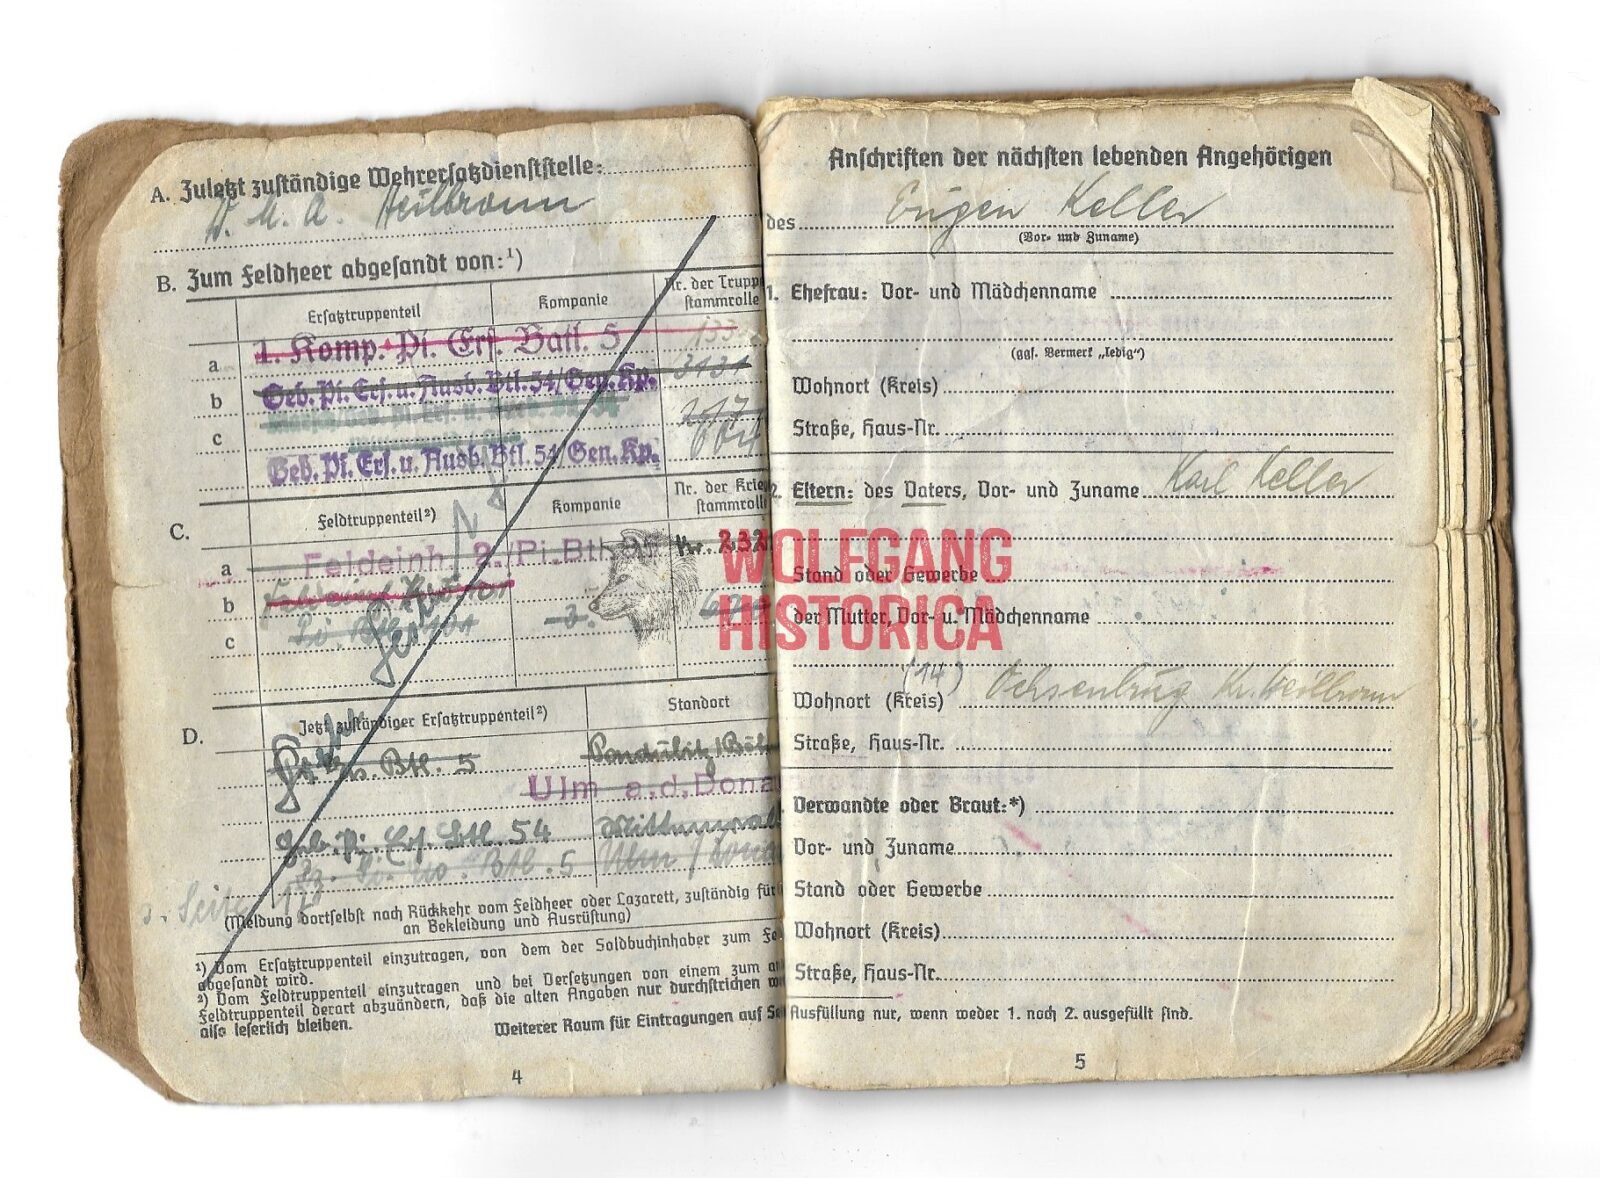 A. Zuletzt zuständige Wehrersatzdienststelle:
W. M. A. Heilbronn
B. Zum Feldheer abgesandt von:¹)
Ersatztruppenteil
Kompanie
Nr. der Trupp
stammrolle
a 1. Komp. Pi. Ers. Batl. 5
b Geb. Pi. Ers. u. Ausb. Btl. 54/Gen. Kp. 3131
c
Geb. Pi. Ers. u. Ausb. Btl. 54/Gen. Kp.
C. Feldtruppenteil²)
Kompanie
Nr. der Krie
stammrolle
a Feldeinh. 2./Pi. Btl. Nr. 232
b
c
D. Jetzt zuständiger Ersatztruppenteil²)
Standort
Pi. Ers. Btl. 5
Ulm a.d. Dona
Geb. Pi. Ers. Btl. 54 Mittenwal
Btl. 5 Ulm / Dona
s. Seite 17
(Meldung dortselbst nach Rückkehr vom Feldheer oder Lazarett, zuständig für
an Bekleidung und Ausrüstung)
¹) Vom Ersatztruppenteil einzutragen, von dem der Soldbuchinhaber zum Fe
abgesandt wird.
²) Vom Feldtruppenteil einzutragen und bei Versetzungen von einem zum an
Feldtruppenteil derart abzuändern, daß die alten Angaben nur durchstrichen we
also leserlich bleiben.
Weiterer Raum für Eintragungen auf Se
4
Anschriften der nächsten lebenden Angehörigen
des Eugen Keller
(Vor- und Zuname)
1. Ehefrau: Vor- und Mädchenname
(ggf. Vermerk „ledig“)
Wohnort (Kreis)
Straße, Haus-Nr.
2. Eltern: des Vaters, Vor- und Zuname Karl Keller
Stand oder Gewerbe
der Mutter, Vor- u. Mädchenname
Wohnort (Kreis) (14) Ochsenburg Kr. Heilbronn
Straße, Haus-Nr.
Verwandte oder Braut:*)
Vor- und Zuname
Stand oder Gewerbe
Wohnort (Kreis)
Straße, Haus-Nr.
Ausfüllung nur, wenn weder 1. noch 2. ausgefüllt sind.
5
WOLFGANG
HISTORICA